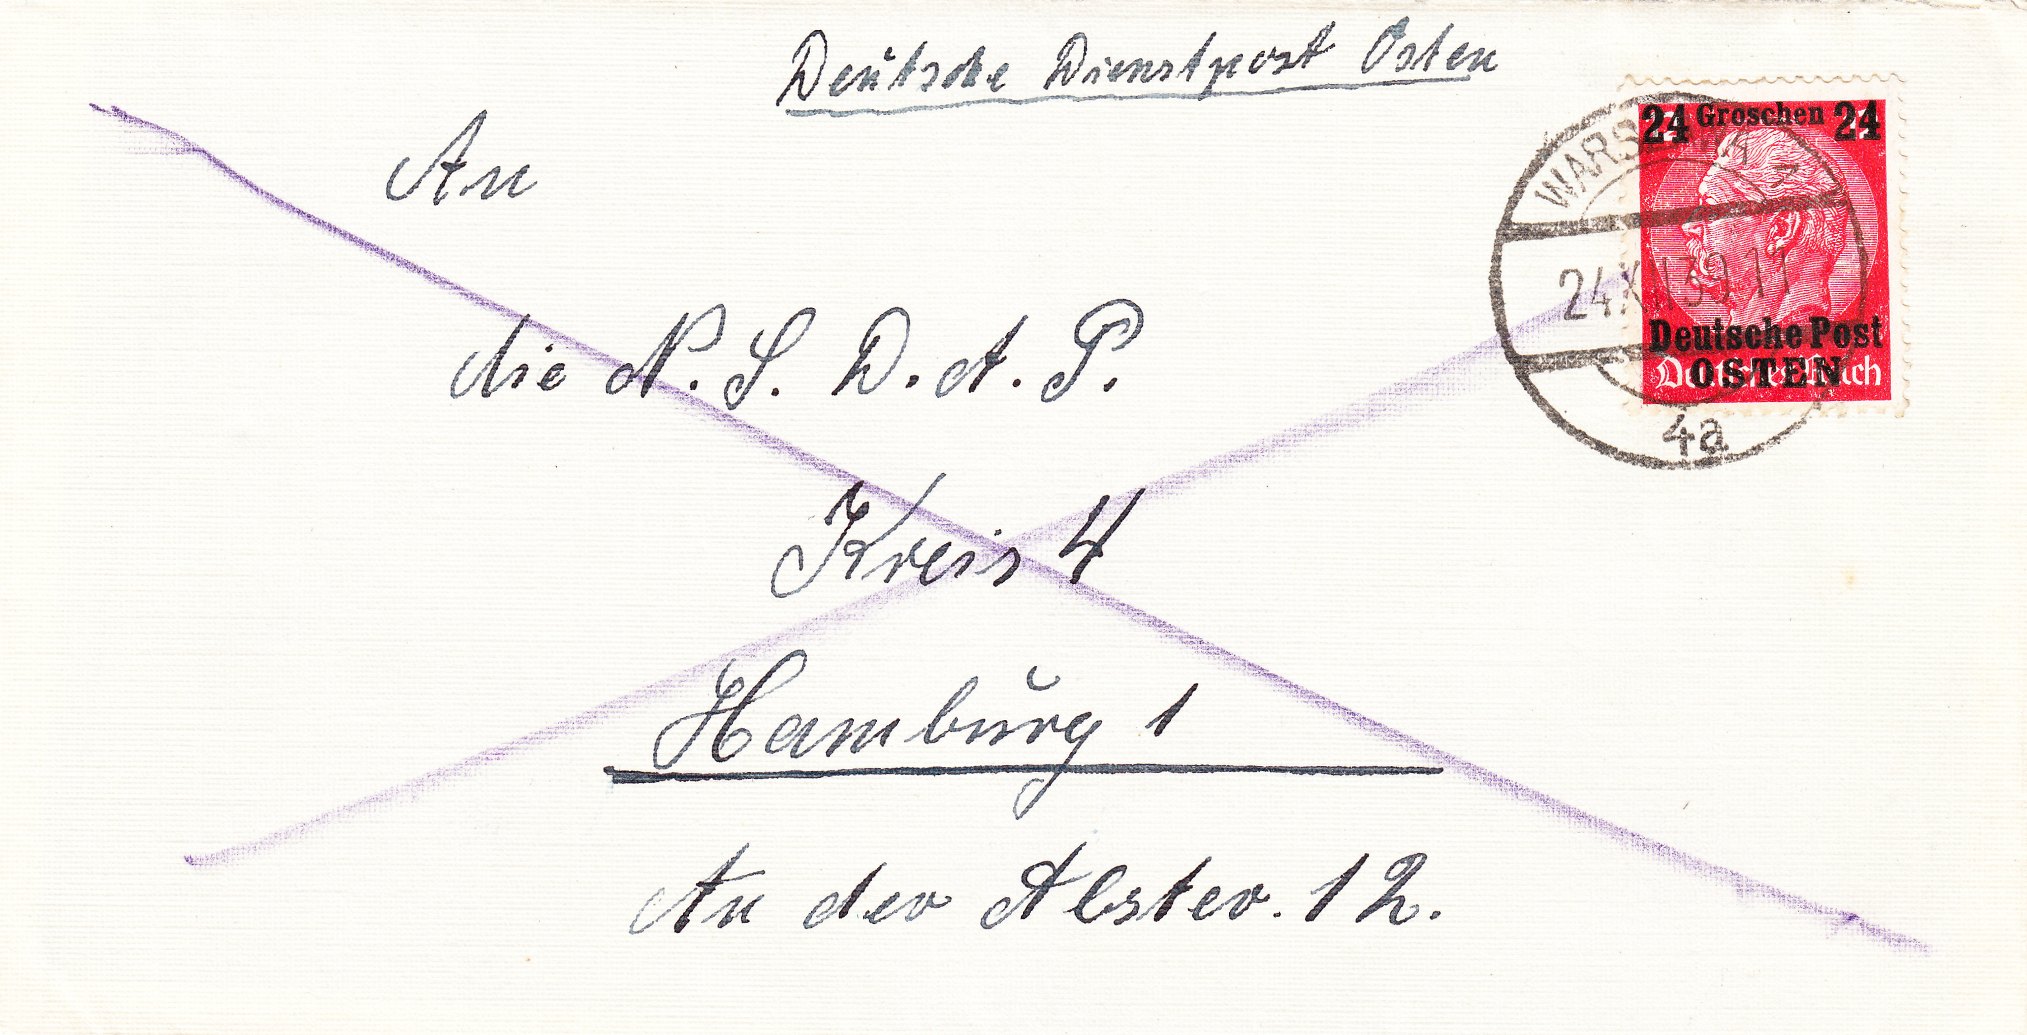 Deutsche Dienstpost Osten
An
die N.S.D.A.P.
Kreis 4
Hamburg 1
An der Alster. 12.
24 Groschen 24
Deutsche Post
OSTEN
Deutsches Reich
24.XII.39.11
4a